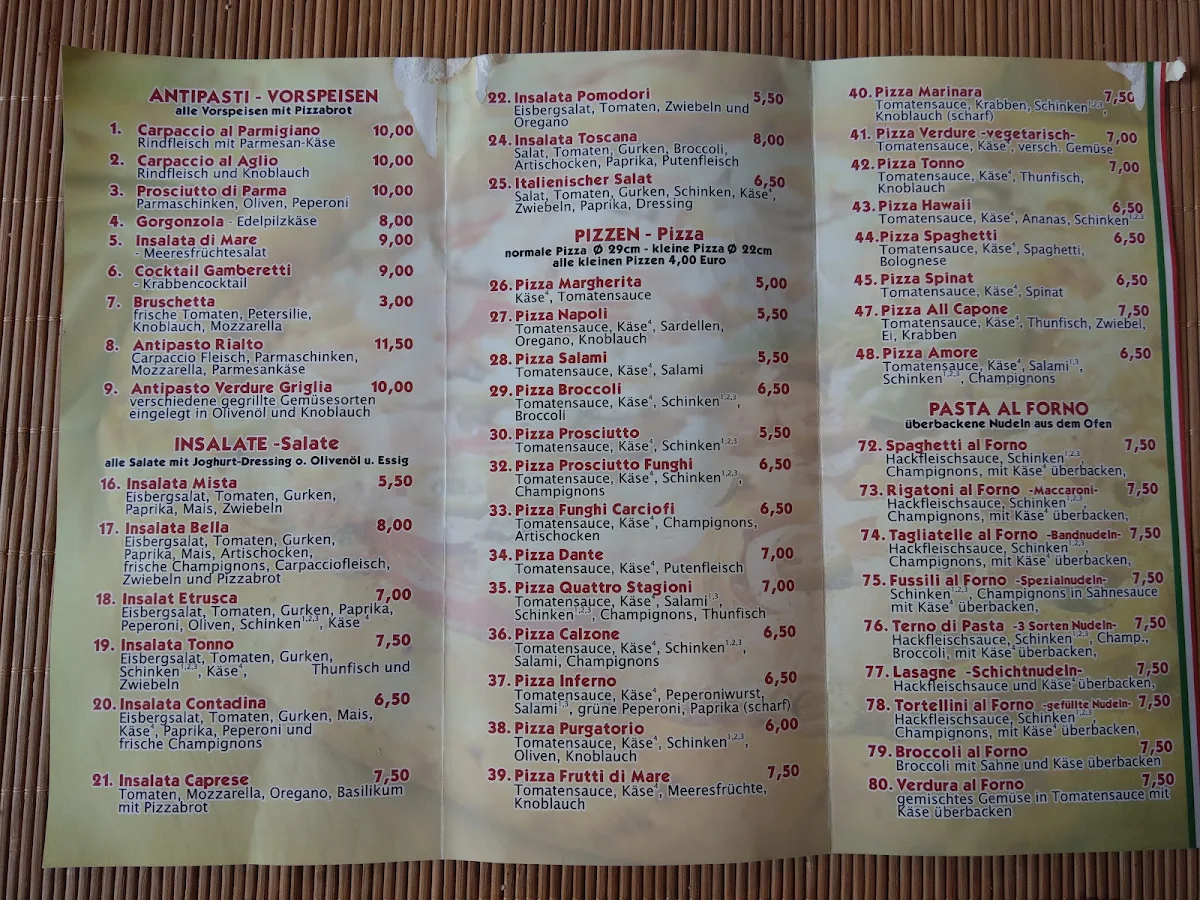 ANTIPASTI - VORSPEISEN
alle Vorspeisen mit Pizzabrot
1. Carpaccio al Parmigiano 10,00
Rindfleisch mit Parmesan-Käse
2. Carpaccio al Aglio 10,00
Rindfleisch und Knoblauch
3. Prosciutto di Parma 10,00
Parmaschinken, Oliven, Peperoni
4. Gorgonzola - Edelpilzkäse 8,00
5. Insalata di Mare 9,00
- Meeresfrüchtesalat
6. Cocktail Gamberetti 9,00
- Krabbencocktail
7. Bruschetta 3,00
frische Tomaten, Petersilie,
Knoblauch, Mozzarella
8. Antipasto Rialto 11,50
Carpaccio Fleisch, Parmaschinken,
Mozzarella, Parmesankäse
9. Antipasto Verdure Griglia 10,00
verschiedene gegrillte Gemüsesorten
eingelegt in Olivenöl und Knoblauch
INSALATE -Salate
alle Salate mit Joghurt-Dressing o. Olivenöl u. Essig
16. Insalata Mista 5,50
Eisbergsalat, Tomaten, Gurken,
Paprika, Mais, Zwiebeln
17. Insalata Bella 8,00
Eisbergsalat, Tomaten, Gurken,
Paprika, Mais, Artischocken,
frische Champignons, Carpacciofleisch,
Zwiebeln und Pizzabrot
18. Insalat Etrusca 7,00
Eisbergsalat, Tomaten, Gurken, Paprika,
Peperoni, Oliven, Schinken1,2,3, Käse 4
19. Insalata Tonno 7,50
Eisbergsalat, Tomaten, Gurken,
Schinken1,2,3, Käse4, Thunfisch und
Zwiebeln
20. Insalata Contadina 6,50
Eisbergsalat, Tomaten, Gurken, Mais,
Käse4, Paprika, Peperoni und
frische Champignons
21. Insalata Caprese 7,50
Tomaten, Mozzarella, Oregano, Basilikum
mit Pizzabrot
22. Insalata Pomodori 5,50
Eisbergsalat, Tomaten, Zwiebeln und
Oregano
24. Insalata Toscana 8,00
Salat, Tomaten, Gurken, Broccoli,
Artischocken, Paprika, Putenfleisch
25. Italienischer Salat 6,50
Salat, Tomaten, Gurken, Schinken, Käse4,
Zwiebeln, Paprika, Dressing
PIZZEN - Pizza
normale Pizza Ø 29cm - kleine Pizza Ø 22cm
alle kleinen Pizzen 4,00 Euro
26. Pizza Margherita 5,00
Käse4, Tomatensauce
27. Pizza Napoli 5,50
Tomatensauce, Käse4, Sardellen,
Oregano, Knoblauch
28. Pizza Salami 5,50
Tomatensauce, Käse4, Salami
29. Pizza Broccoli 6,50
Tomatensauce, Käse4, Schinken1,2,3,
Broccoli
30. Pizza Prosciutto 5,50
Tomatensauce, Käse4, Schinken1,2,3
32. Pizza Prosciutto Funghi 6,50
Tomatensauce, Käse4, Schinken1,2,3,
Champignons
33. Pizza Funghi Carciofi 6,50
Tomatensauce, Käse4, Champignons,
Artischocken
34. Pizza Dante 7,00
Tomatensauce, Käse4, Putenfleisch
35. Pizza Quattro Stagioni 7,00
Tomatensauce, Käse4, Salami1,3,
Schinken1,2,3, Champignons, Thunfisch
36. Pizza Calzone 6,50
Tomatensauce, Käse4, Schinken1,2,3,
Salami, Champignons
37. Pizza Inferno 6,50
Tomatensauce, Käse4, Peperoniwurst,
Salami1,3, grüne Peperoni, Paprika (scharf)
38. Pizza Purgatorio 6,00
Tomatensauce, Käse4, Schinken1,2,3,
Oliven, Knoblauch
39. Pizza Frutti di Mare 7,50
Tomatensauce, Käse4, Meeresfrüchte,
Knoblauch
40. Pizza Marinara 7,50
Tomatensauce, Krabben, Schinken1,2,3,
Knoblauch (scharf)
41. Pizza Verdure -vegetarisch- 7,00
Tomatensauce, Käse4, versch. Gemüse
42. Pizza Tonno 7,00
Tomatensauce, Käse4, Thunfisch,
Knoblauch
43. Pizza Hawaii 6,50
Tomatensauce, Käse4, Ananas, Schinken1,2,3
44. Pizza Spaghetti 6,50
Tomatensauce, Käse4, Spaghetti,
Bolognese
45. Pizza Spinat 6,50
Tomatensauce, Käse4, Spinat
47. Pizza All Capone 7,50
Tomatensauce, Käse4, Thunfisch, Zwiebel,
Ei, Krabben
48. Pizza Amore 6,50
Tomatensauce, Käse4, Salami1,3,
Schinken1,2,3, Champignons
PASTA AL FORNO
überbackene Nudeln aus dem Ofen
72. Spaghetti al Forno 7,50
Hackfleischsauce, Schinken1,2,3,
Champignons, mit Käse4 überbacken,
73. Rigatoni al Forno -Maccaroni- 7,50
Hackfleischsauce, Schinken1,2,3,
Champignons, mit Käse4 überbacken,
74. Tagliatelle al Forno -Bandnudeln- 7,50
Hackfleischsauce, Schinken1,2,3,
Champignons, mit Käse4 überbacken,
75. Fussili al Forno -Spezialnudeln- 7,50
Schinken1,2,3, Champignons in Sahnesauce
mit Käse4 überbacken,
76. Terno di Pasta -3 Sorten Nudeln- 7,50
Hackfleischsauce, Schinken1,2,3, Champ.,
Broccoli, mit Käse4 überbacken,
77. Lasagne -Schichtnudeln- 7,50
Hackfleischsauce und Käse4 überbacken,
78. Tortellini al Forno -gefüllte Nudeln- 7,50
Hackfleischsauce, Schinken1,2,3,
Champignons, mit Käse4 überbacken,
79. Broccoli al Forno 7,50
Broccoli mit Sahne und Käse überbacken
80. Verdura al Forno 7,50
gemischtes Gemüse in Tomatensauce mit
Käse überbacken